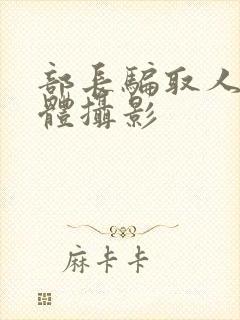 部長騙取人
體攝影
麻卡卡